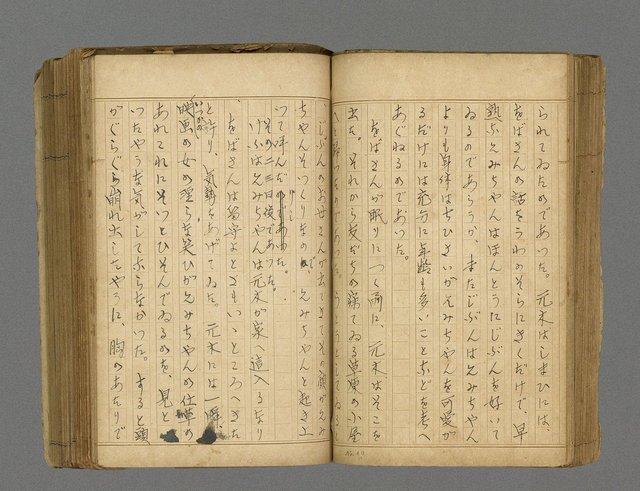 られてゐたのであつた。元木はしまひには、
をばさんの話をうわのそらにきくだけで、早
熟なえみちやんはほんとうにじぶんを好いて
ゐるのであらうか、まだじぶんはえみちやん
よりも身体はちひさいがえみちやんを可愛が
るだけには充分に年齢も多いことなどを考へ
あぐねるのであいた。
をばさんが眠りにつく前に、元木はそこを
出た。それから友だちの寝てゐる草倉の小屋
じぶんのお母さんが出て来てその顔がえみ
ちやんそつくりなので、えみちやんと起き上
つて呼んだのであつた。
その二三日後であつた。
けふはえみちやんは元木が家へ這入るなり
をばさんは留守よとさもいいところへきた
と許り、気勢をあげてゐた。元木には一瞬、
いつかの
映画の女の淫らな笑ひがえみちやんの仕草の
あれこれにそつとひそんでゐるのを、見と
いたやうな気がしてならなかつた。すると頭
がぐらぐら崩れ出したやうに、胸のあたりで